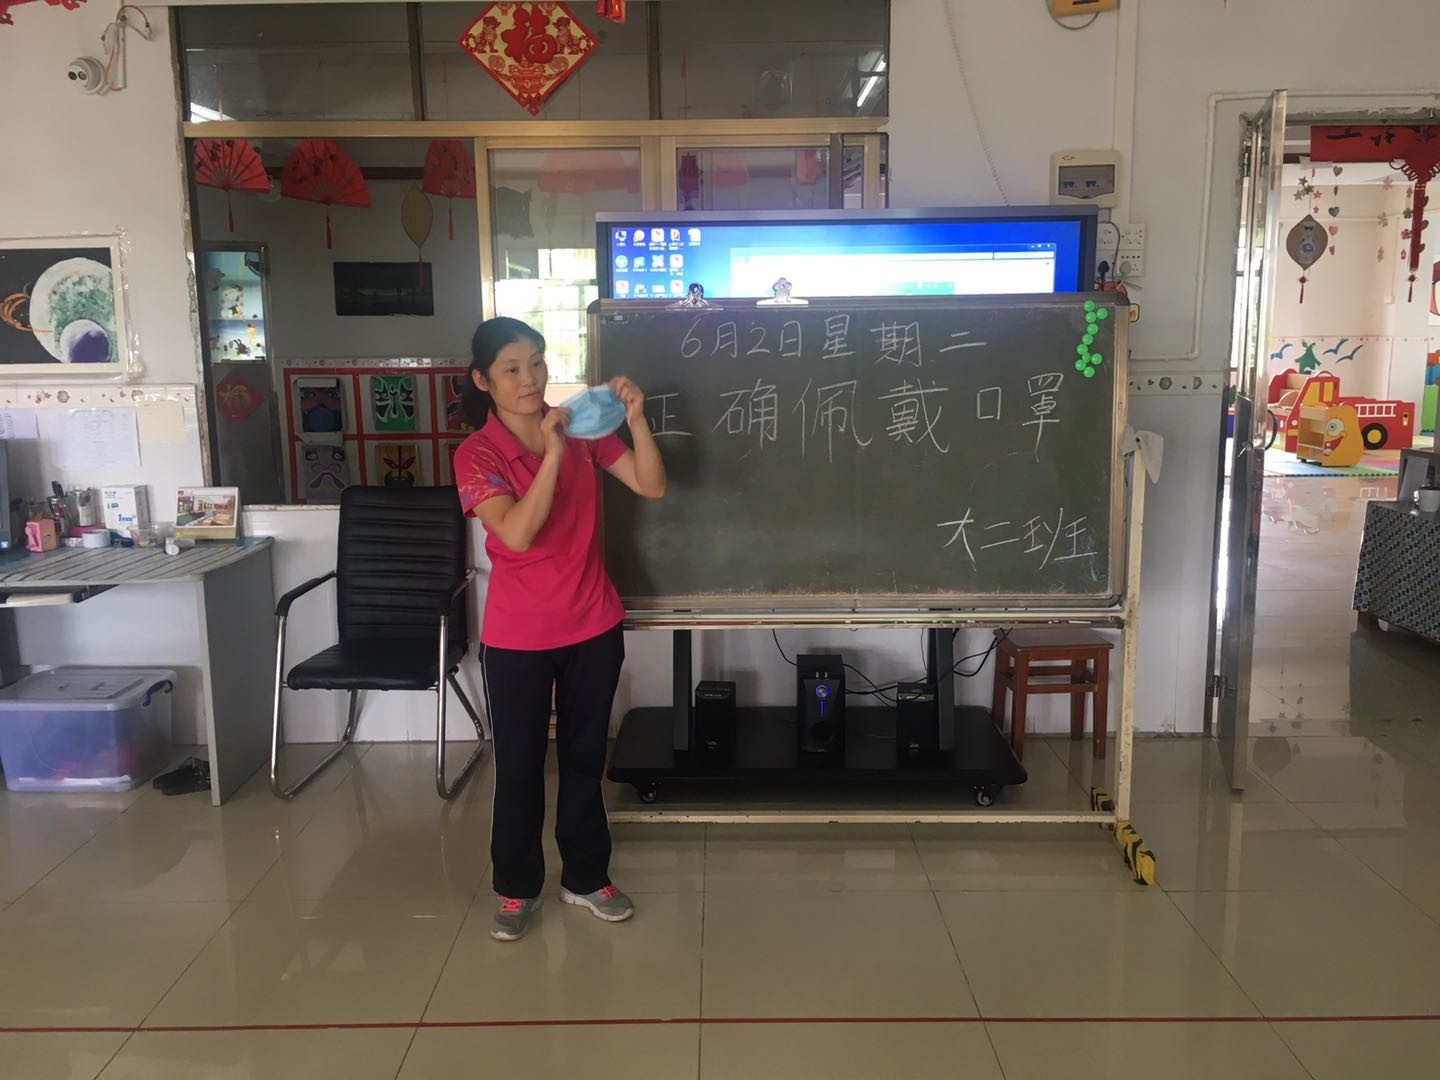 福
6月2日星期二
正确佩戴口罩
大二班